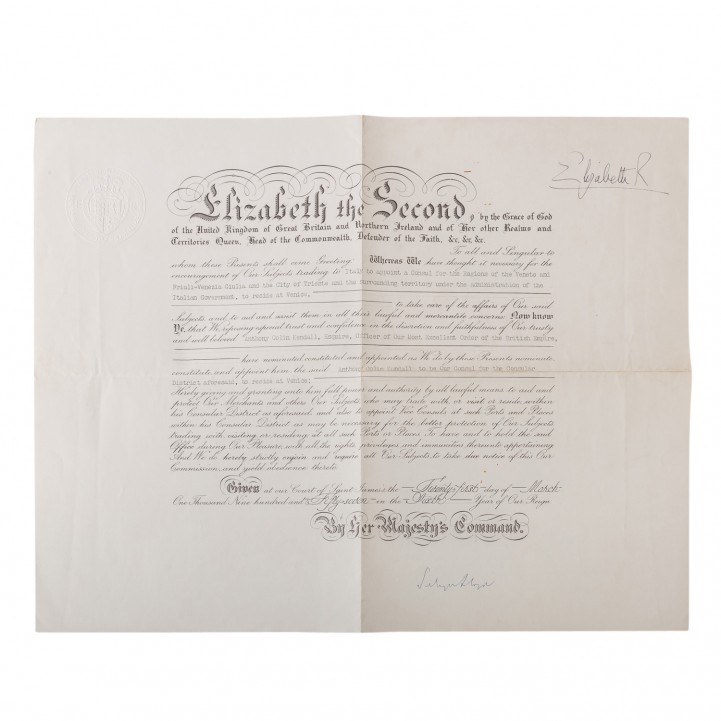 Elizabeth R
Elizabeth the Second, by the Grace of God
of the United Kingdom of Great Britain and Northern Ireland and of Her other Realms and
Territories Queen, Head of the Commonwealth, Defender of the Faith, &c, &c, &c.
To all and Singular to
whom these Presents shall come Greeting Whereas We have thought it necessary for the
encouragement of Our Subjects trading to Italy to appoint a Consul for the Regions of the Veneto and
Friuli-Venezia Giulia and the City of Trieste and the surrounding territory under the administration of the
Italian Government, to reside at Venice,
to take care of the affairs of Our said
Subjects and to aid and assist them in all their lawful and mercantile concerns Now know
Ye, that We reposing especial trust and confidence in the discretion and faithfulness of Our trusty
and well beloved Anthony Colin Kendall, Esquire, Officer of Our Most Excellent Order of the British Empire,
have nominated constituted and appointed as We do by these Presents nominate
constitute and appoint him the said Anthony Colin Kendall, to be Our Consul for the Consular
District aforesaid, to reside at Venice;
Hereby giving and granting unto him full power and authority by all lawful means to aid and
protect Our Merchants and others Our Subjects who may trade with or visit or reside within
his Consular District as aforesaid, and also to appoint Vice Consuls at such Ports and Places
within his Consular District as may be necessary for the better protection of Our Subjects
trading with, visiting or residing at all such Ports or Places To have and to hold the said
Office during Our Pleasure with all the rights privileges and immunities thereunto appertaining
And We do hereby strictly enjoin and require all Our Subjects, to take due notice of this Our
Commission, and yield obedience thereto.
Given at our Court of Saint James's, the Twenty-first day of March
One Thousand Nine hundred and Fifty-seven in the Sixth Year of Our Reign
By Her Majesty's Command.
Selwyn Lloyd